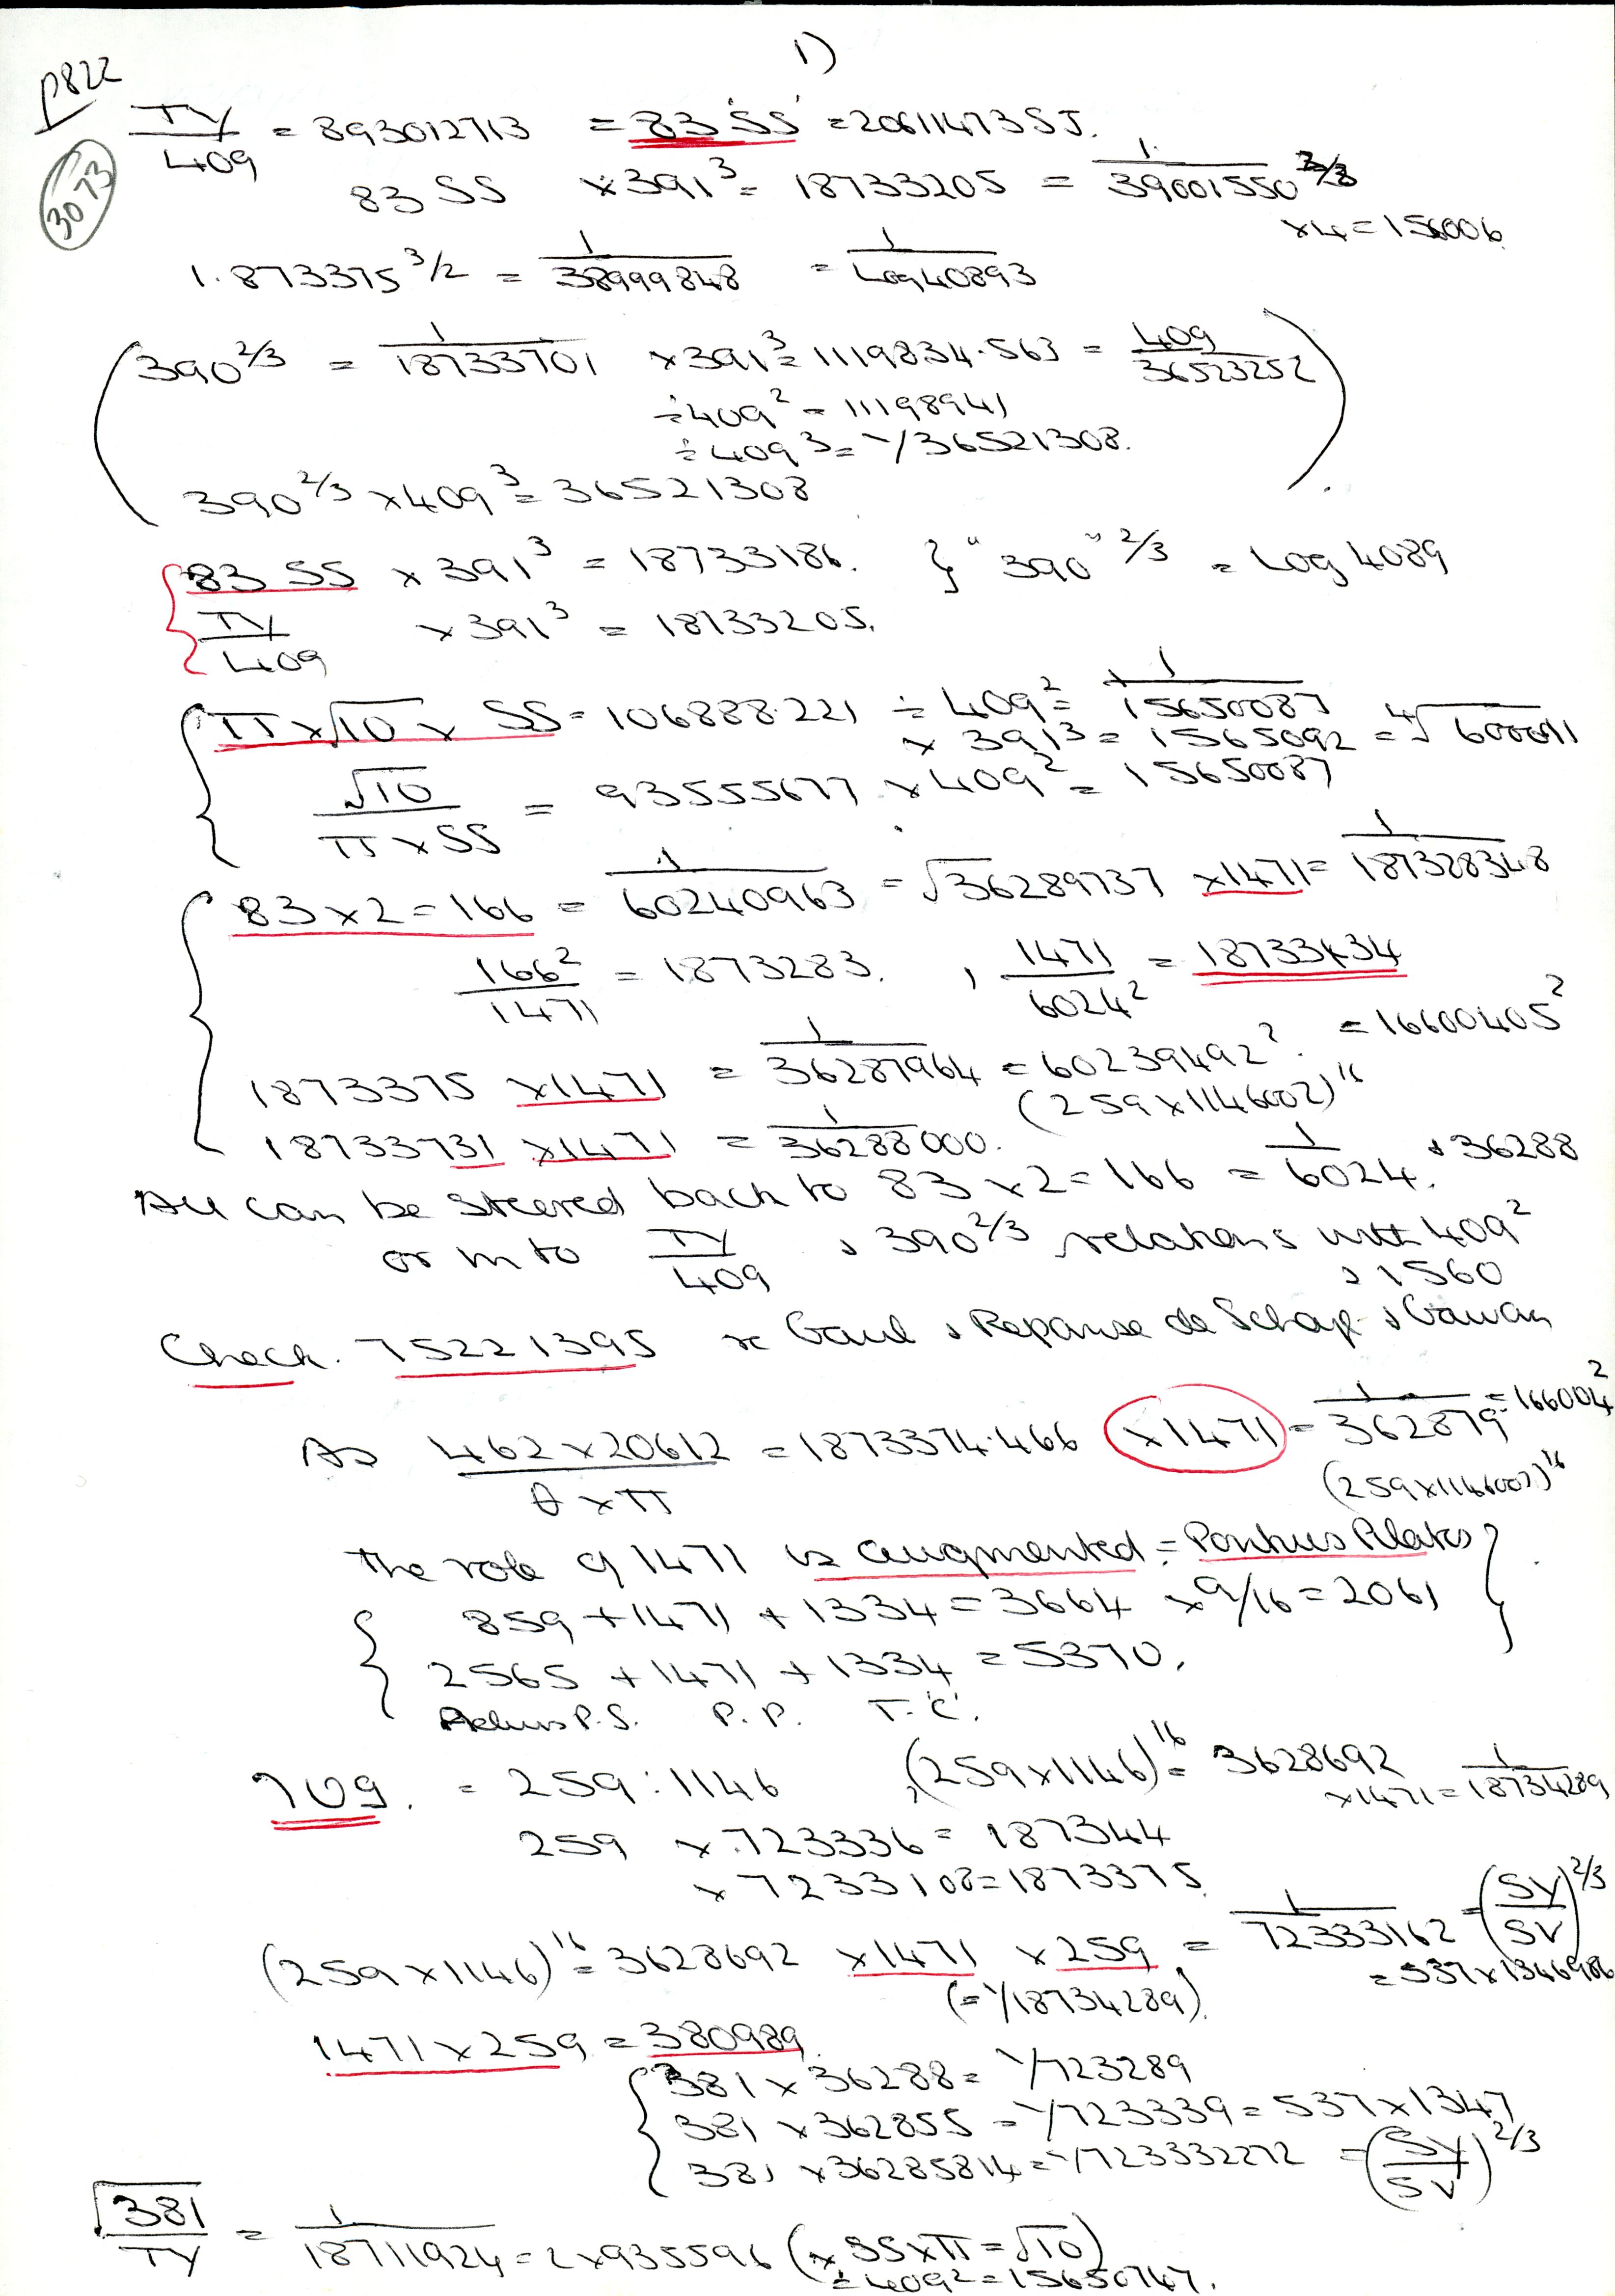 1)
P822
3073
TY/409 = 893012713 = 83 'SS' = 20611473 SJ.
83 SS ×391³ = 18733205 = 1/39001550 ²/³
×4 = 156006
1.873375 ³/² = 1/38999848 = 1/40940893
(390 ²/³ = 1/18733701 ×391³ = 1119834.563 = 409/36523252
÷409² = 11198941
÷409³ = 1/36521308.
390 ²/³ ×409³ = 36521308)
{83 SS × 391³ = 18733186. } "390" ²/³ = Log 4089
TY/409 ×391³ = 18733205.
{π×√10 × SS = 106888.221 ÷ 409² = 1/15650087
× 391³ = 1565092 = ⁴√600011
√10/(π×SS) = 93555677 ×409² = 15650087
{83×2=166 = 1/60240963 = √36289737 ×1471 = 1/187328348
166²/1471 = 1873283. , 1471/6024² = 18733434
= 16600405²
1873375 ×1471 = 1/36287964 = 60239492².
(259×1146002)¹⁶
18733731 ×1471 = 1/36288000.
All can be steered back to 83×2=166 = 1/6024. , 36288
or in to TY/409 , 390 ²/³ relations with 409²
, 1560
Check. 75221395 re Gaul , Repanse de Schoye , Gawan
As (462×20612)/(θ×π) = 1873374.466 ×1471 = 1/362879 = 166004²
(259×1146002)¹⁶
The role of 1471 is augmented = Pontius Pilates }
{859+1471+1334=3664 ×9/16=2061
2565+1471+1334=5370.
P.S. P.P. T.'C'.
709. = 259:1146 , (259×1146)¹⁶ = 3628692
×1471 = 1/18734289
259 ×.723336 = 187344
×7233108 = 1873375
(259×1146)¹⁶ = 3628692 ×1471 ×259 = 1/72333162 = (SY/SV)²/³
(=1/18734289). = 537×1346986
1471×259 = 380989.
{381×36288 = 1/723289
381×362855 = 1/723339 = 537×1347
381×36285814 = 1/723332272 = (SY/SV)²/³
√381/TY = 1/18711924 = 2×935596 (×SS×π=√10)
÷409² = 15650747.